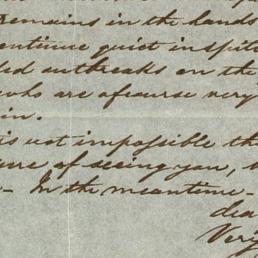 remains in the hands
continue quiet in spite
outbreaks on the
who are of course very
in.
is not impossible tha
ure of seeing you, 
- In the meantime -
dea
Very